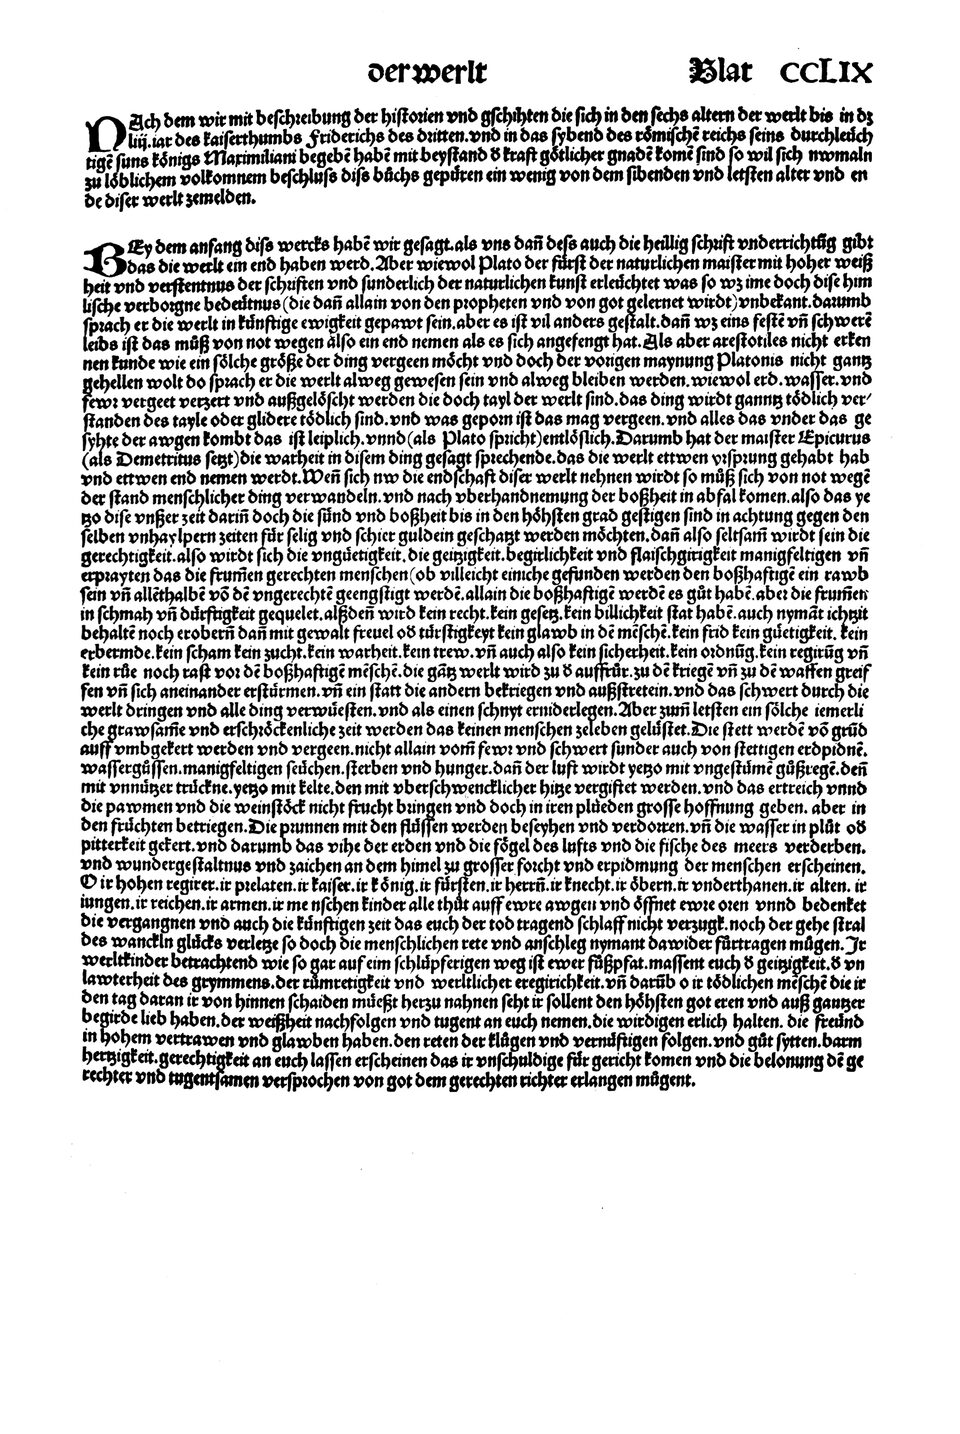 der werlt Blat CCLIX
NAch dem wir mit beschreibung der historien vnd gschihten die sich in den sechs altern der werlt bis in dz
liij. iar des kaiserthumbs Friderichs des dritten. vnd in das sybend des römischē reichs seins durchleüch
tigē suns königs Maximiliani begebē habē mit beystand d̕ kraft götlicher gnadē komē sind so wil sich nwmaln
zu löblichem volkomnem beschluss diss bůchs gepüren ein wenig von dem sibenden vnd letsten alter vnd en
de diser werlt zemelden.
BEy dem anfang diss wercks habē wir gesagt. als vns dañ dess auch die heillig schrift vnderrichtūg gibt
das die werlt ein end haben werd. Aber wiewol Plato der fürst der naturlichen maister mit hoher weiß
heit vnd verstentnus der schriften vnd sunderlich der naturlichen kunst erleüchtet was so wz ime doch dise him
lische verborgne bedeütnus (die dañ allain von den propheten vnd von got gelernet wirdt) vnbekant. darumb
sprach er die werlt in künftige ewigkeit gepawt sein. aber es ist vil anders gestalt. dañ wz eins festē vñ schwerē
leibs ist das můß von not wegen also ein end nemen als es sich angefengt hat. Als aber arestotiles nicht erken
nen kunde wie ein sölche größe der ding vergeen möcht vnd doch der vorigen maynung Platonis nicht gantz
gehellen wolt do sprach er die werlt alweg gewesen sein vnd alweg bleiben werden. wiewol erd. wasser. vnd
fewr vergeet verzert vnd außgelöscht werden die doch tayl der werlt sind. das ding wirdt ganntz tödlich ver⸗
standen des tayle oder glidere tödlich sind. vnd was geporn ist das mag vergeen. vnd alles das vnder das ge
syhte der awgen kombt das ist leiplich. vnnd (als Plato spricht) entlöslich. Darumb hat der maister Epicurus
(als Demetritus setzt) die warheit in disem ding gesagt sprechende. das die werlt ettwen vrsprung gehabt hab
vnd ettwen end nemen werdt. Weñ sich nw die endschaft diser werlt nehnen wirdt so můß sich von not wegē
der stand menschlicher ding verwandeln. vnd nach vberhandnemung der boßheit in abfal komen. also das ye
tzo dise vnßer zeit dariñ doch die sünd vnd boßheit bis in den höhsten grad gestigen sind in achtung gegen den
selben vnhaylpern zeiten für selig vnd schier guldein geschatzt werden möchten. dañ also seltsam̄ wirdt sein die
gerechtigkeit. also wirdt sich die vngüetigkeit. die geitzigkeit. begirlichkeit vnd flaischgirigkeit manigfeltigen vñ
erprayten das die frum̄en gerechten menschen (ob villeicht einiche gefunden werden den boßhaftigē ein rawb
sein vñ allēthalbē vō dē vngerechtē geengstigt werdē. allain die boßhaftigē werdē es gůt habē. aber die frum̄en
in schmah vñ dürftigkeit gequelet. alßdeñ wird kein recht. kein gesetz. kein billichkeit stat habē. auch nymāt ichtzit
behaltē noch eroberñ dañ mit gewalt freuel od̕ türstigkeyt kein glawb in dē mēschē. kein frid kein güetigkeit. kein
erbermde. kein scham kein zucht. kein warheit. kein trew. vñ auch also kein sicherheit. kein ordnūg. kein regirūg vñ
kein růe noch rast vor dē boßhaftigē mēschē. die gātz werlt wird zu d̕ auffrůr. zu dē kriegē vñ zu dē waffen greif
fen vñ sich aneinander erstürmen. vñ ein statt die andern bekriegen vnd außstretein. vnd das schwert durch die
werlt dringen vnd alle ding verwüesten. vnd als einen schnyt erniderlegen. Aber zum̄ letsten ein sölche iemerli
che grawsam̄e vnd erschröckenliche zeit werden das keinen menschen zeleben gelüstet. Die stett werdē vō grūd
auff vmbgekert werden vnd vergeen. nicht allain vom̄ fewr vnd schwert sunder auch von stettigen erdpidnē.
wassergüssen. manigfeltigen seüchen. sterben vnd hunger. dañ der luft wirdt yetzo mit vngestümē güßregē. deñ
mit vnnützer trückne. yetzo mit kelte. den mit vberschwencklicher hitze vergiftet werden. vnd das ertreich vnnd
die pawmen vnd die weinstöck nicht frucht bringen vnd doch in iren plüeden grosse hoffnung geben. aber in
den früchten betriegen. Die prunnen mit den flüssen werden beseyhen vnd verdorren. vñ die wasser in plůt od̕
pitterkeit gekert. vnd darumb das vihe der erden vnd die fögel des lufts vnd die fische des meers verderben.
vnd wundergestaltnus vnd zaichen an dem himel zu grosser forcht vnd erpidmung der menschen erscheinen.
O ir hohen regirer. ir prelaten. ir kaiser. ir könig. ir fürsten. ir herrñ. ir knecht. ir öbern. ir vnderthanen. ir alten. ir
iungen. ir reichen. ir armen. ir menschen kinder alle thůt auff ewre awgen vnd öffnet ewre oren vnnd bedenket
die vergangnen vnd auch die künftigen zeit das euch der tod tragend schlaff nicht verzugk. noch der gehe stral
des wanckln glücks verletze so doch die menschlichen rete vnd anschleg nymant dawider fürtragen mügen. Ir
werltkinder betrachtend wie so gar auf eim schlüpferigen weg ist ewer fůßpfat. massent euch d̕ geitzigkeit. d̕ vn
lawterheit des grymmens. der růmretigkeit vnd werltlicher eregirichkeit. vñ darūb o ir tödlichen mēschē die ir
den tag daran ir von hinnen schaiden müeßt herzu nahnen seht ir sollent den höhsten got eren vnd auß gantzer
begirde lieb haben. der weißheit nachfolgen vnd tugent an euch nemen. die wirdigen erlich halten. die freünd
in hohem vertrawen vnd glawben haben. den reten der klůgen vnd vernüftigen folgen. vnd gůt sytten. barm
hertzigkeit. gerechtigkeit an euch lassen erscheinen das ir vnschuldige für gericht komen vnd die belonung dē ge
rechter vnd tugentsamen versprochen von got dem gerechten richter erlangen mügent.